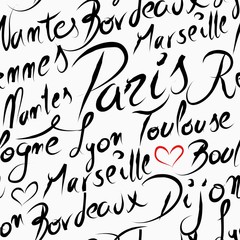 Nantes Bordeaux
ennes Marseille
Nantes Paris Re
logne Lyon Toulouse
Marseille Boul
on Bordeaux Dijon